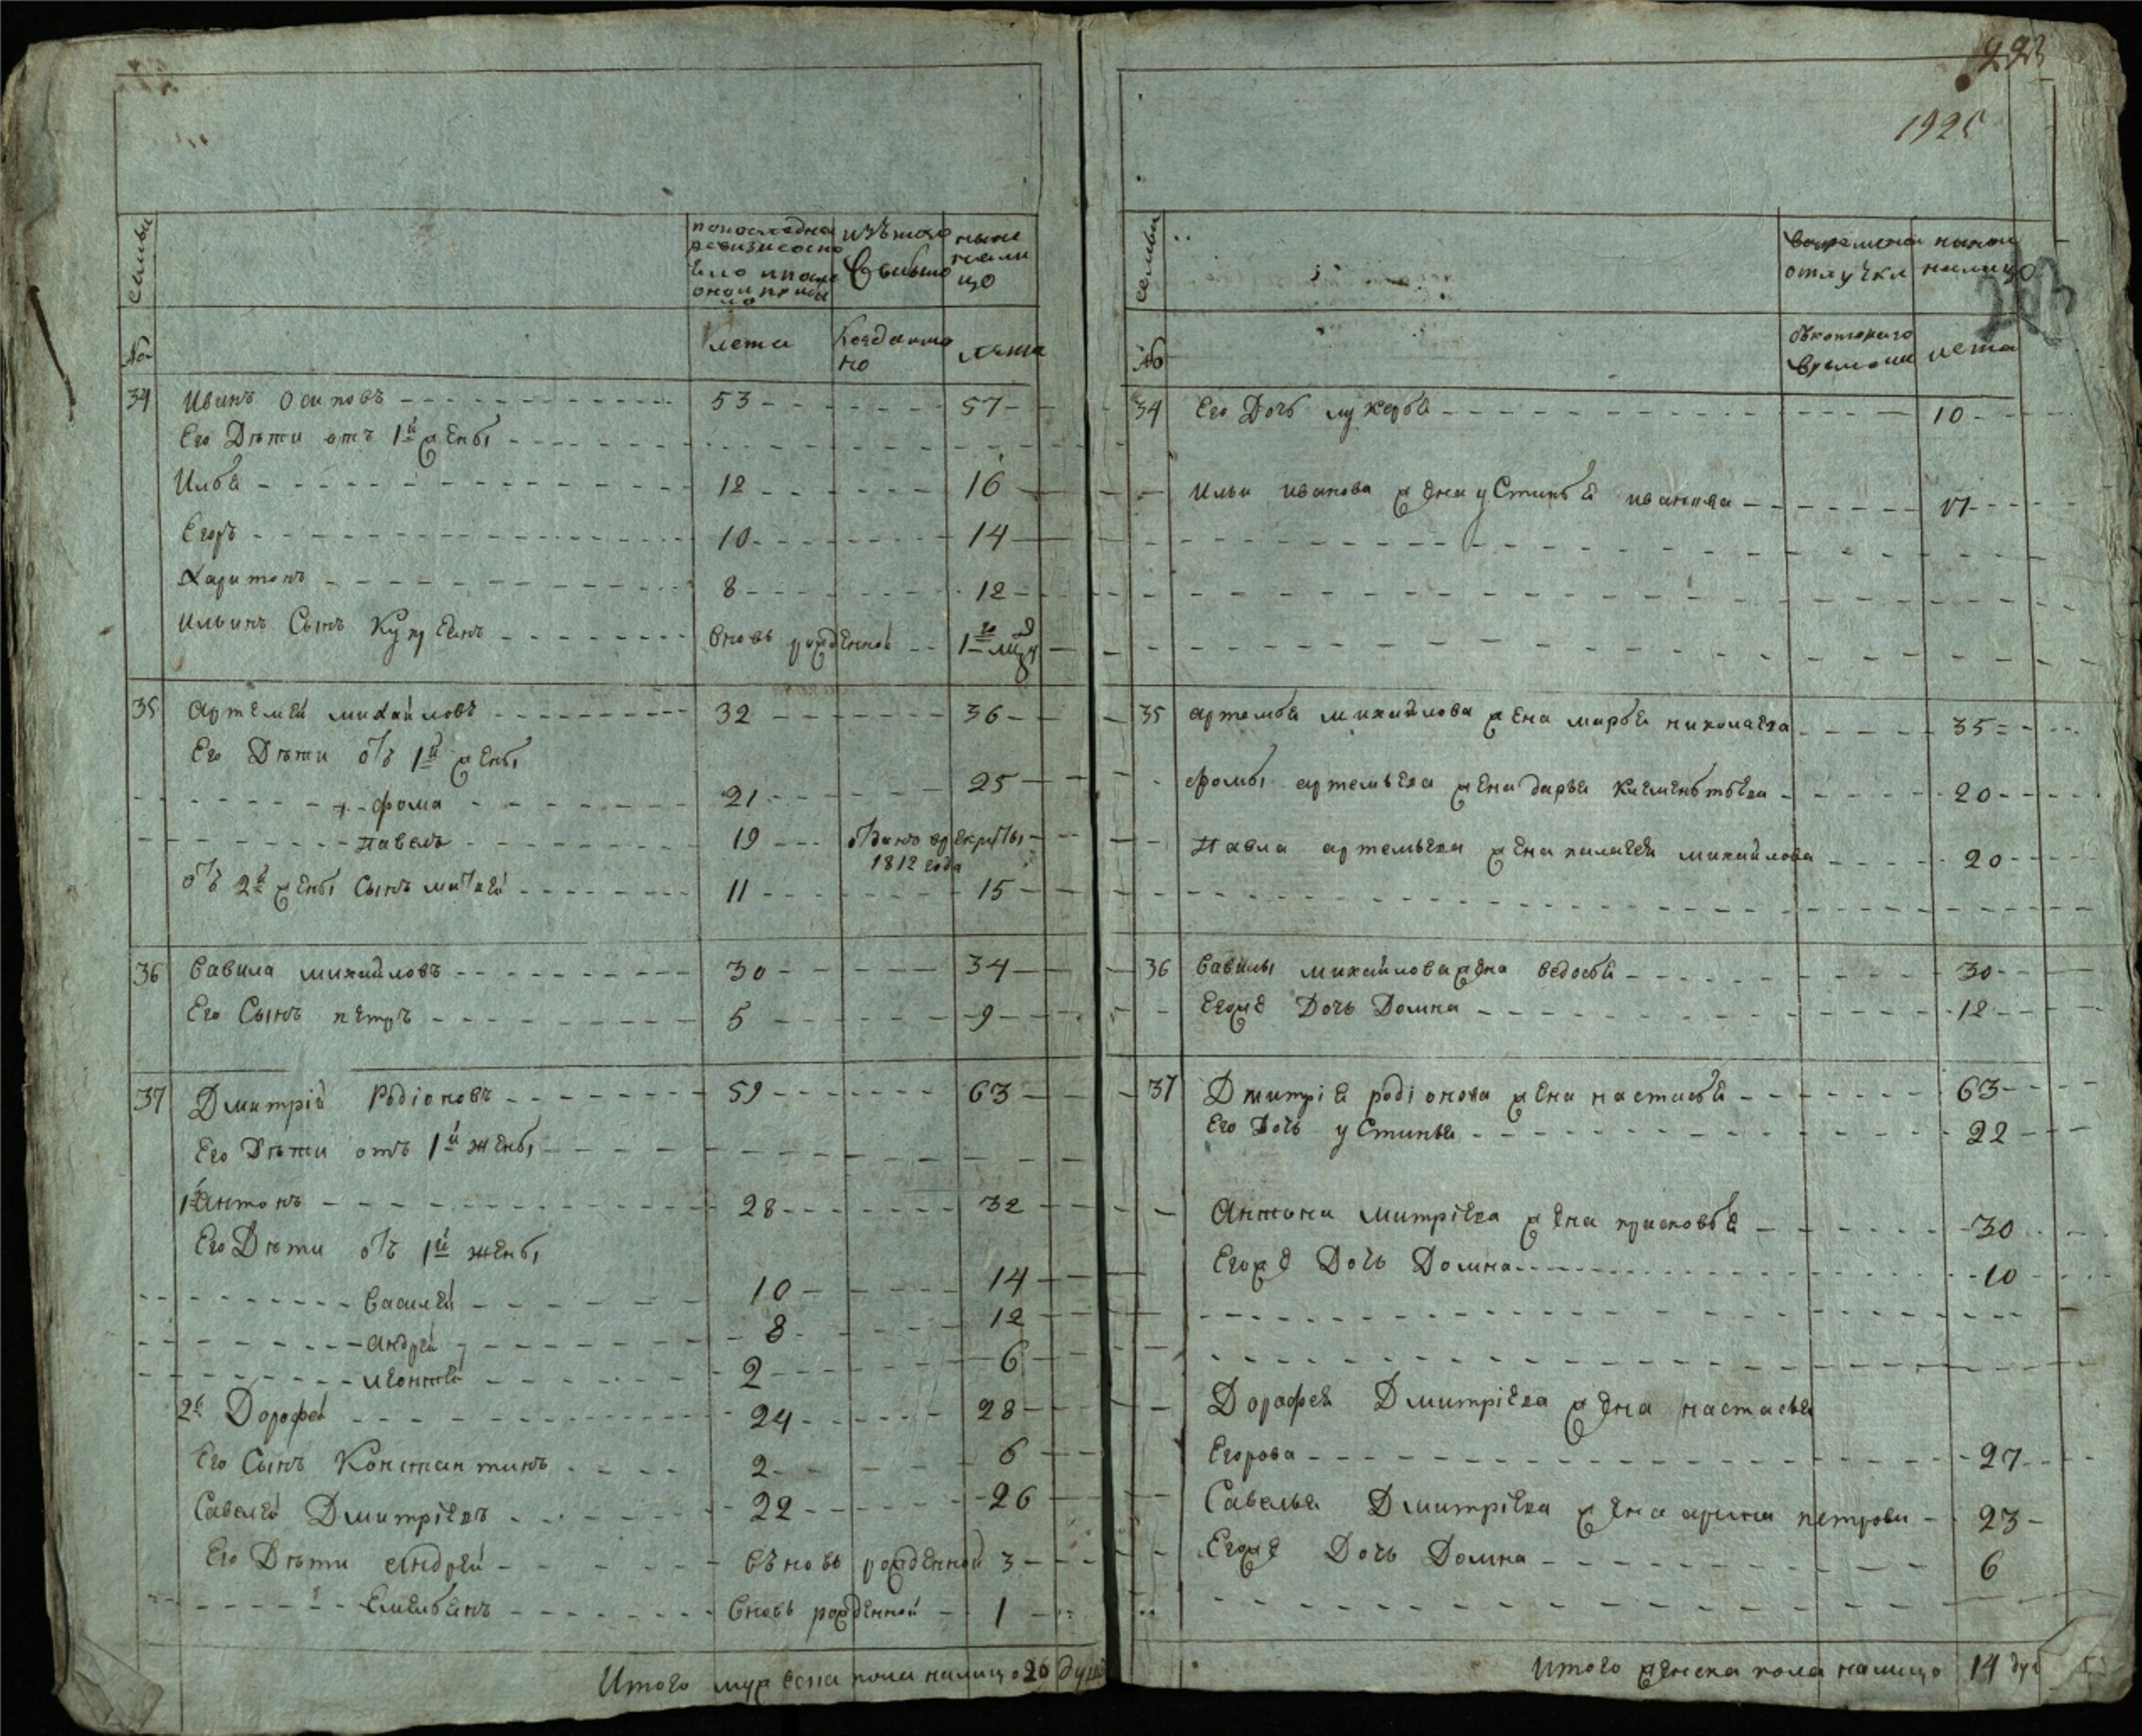 223
192
203
семьи
по последней
ревизии состо
яло и после
оной прибы
ло
изъ того
Выбыло
ныне
нали
цо
№
лета
Когда имя
но
лета
34 Иванъ Осиповъ 53 57
Его Дѣти отъ 1й женъ
Илья 12 16
Егоръ 10 14
Харитонъ 8 12
Ильинъ Сынъ Вновь рожденной 1
35 Артемей михайловъ 32 36
Его Дѣти отъ 1й женъ
Фома 21 25
павелъ 19 отданъ врекруты
1812 года
отъ 2й женъ Сынъ матвей 11 15
36 Вавила михайловъ 30 34
Его Сынъ петръ 5 9
37 Дмитрій Родіоновъ 59 63
Его Дѣти отъ 1й женъ
1й Антонъ 28 32
Его Дѣти отъ 1й женъ
Василей 10 14
андрей 8 12
леонтей 2 6
2й Дорофей 24 28
Его Сынъ Константинъ 2 6
Савелей Дмитріевъ 22 26
Его Дѣти андрей въновь рожденной 3
Емельянъ вновь рожденной 1
Итого мужеска пола налицо 20 душъ
семьи
во временной
отлучки
ныне
налицо
№
съ котораго
времени
лета
34 Его Дочь лукерья 10
Ильи иванова жена устинья иванова 17
35 артемья михайлова жена марья николаева 35
фомы артемьева жена дарья Клементьева 20
павла артемьева жена палагея михайлова 20
36 Вавилы михайлова жена ведосья 30
Егоже Дочь Домна 12
37 Дмитрія родіонова жена настасья 63
Его Дочь устинья 22
Антона митріева жена прасковья 30
Егоже Дочь Домна 10
Дорофея Дмитріева жена настасья
Егорова 27
Савелья Дмитріева жена арина петрова 23
Егоже Дочь Домна 6
Итого женска пола налицо 14 ду